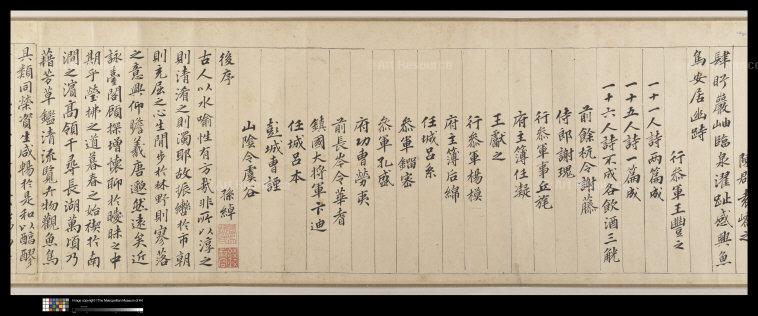 陳郡袁嶠之
肆眄巖岫臨泉濯趾感興魚
鳥安居幽跱
行參軍王豐之
一十一人詩兩篇成
一十五人詩一篇成
一十六人詩不成各飲酒三觥
前餘杭令謝藤
侍郎謝瑰
行參軍事丘旄
府主簿任凝
王獻之
行參軍楊模
府主簿后綿
任城呂系
參軍劉密
參軍孔盛
府功曹勞夷
前長岑令華耆
鎮國大將軍卞迪
任城呂本
彭城曹諲
山陰令虞谷
後序
孫綽
古人以水喻性有方哉非所以淳之
則清淆之則濁耶故振轡於市朝
則充屈之心生閒步於林野則寥落
之意興仰瞻羲唐邈然遠矣近
詠臺閣顧探增懷聊於曖昧之中
期乎瑩拂之道暮春之始禊於南
澗之濱高嶺千尋長湖萬頃乃
藉芳草鑑清流覽卉物觀魚鳥
具類同榮資生咸暢於是和以醇醪
Art Resource
Image copyright The Metropolitan Museum of Art